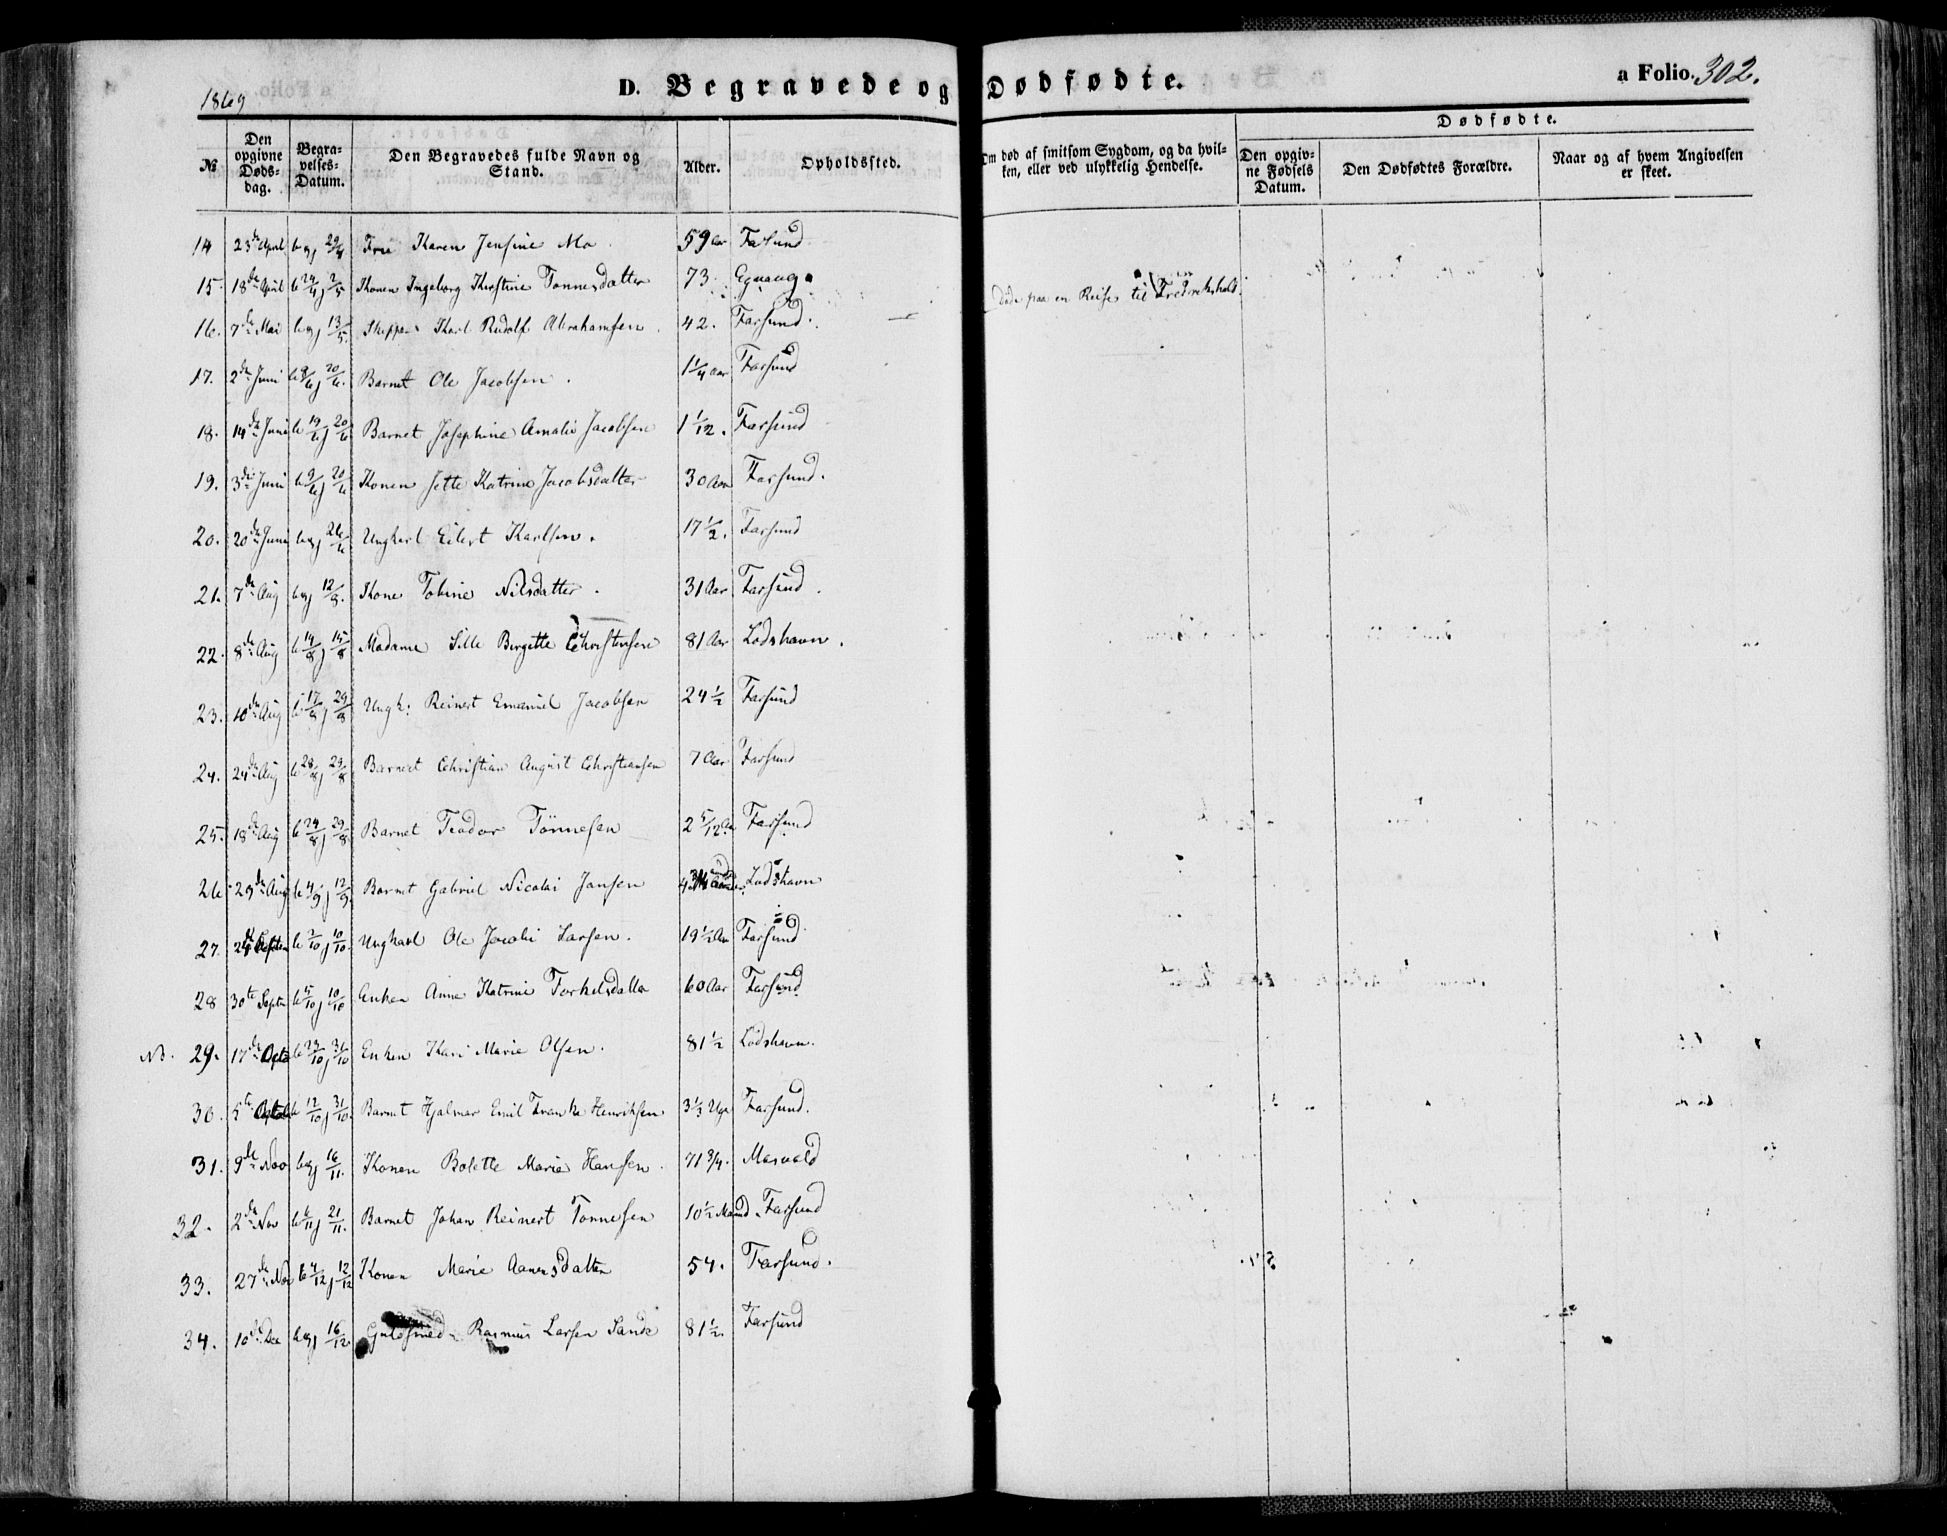 1869
D. Begravede og Dødfødte.
a Folio. 302.
№
Den opgivne Døds-dag.
Begra-velses-Datum.
Den Begravedes fulde Navn og Stand.
Alder.
Opholdssted.
Om død af smitsom Sygdom, og da hvil-ken, eller ved ulykkelig Hendelse.
Dødfødte.
Den opgiv-ne Fødsels Datum.
Den Dødfødtes Forældre.
Naar og af hvem Angivelsen er skeet.
14 23de April beg 29/4 Fru Karen Jensine Mo. 59 Aar Farsund
15. 18de April b 24/4 j 2/5 Konen Ingeborg Kirstine Tønnesdatter 73. Egvaag. Døde paa en Reise til Fredrikshald.
16. 7de Mai beg 13/5. Skipper Karl Rudolf Abrahamsen. 42. Farsund.
17. 2den Juni b 9/6 j 20/6. Barnet Ole Jacobsen. 1 1/4 Aar Farsund
18. 14de Juni b 19/6 j 20/6 Barnet Josephine Amalie Jacobsen 1 1/12. Farsund
19. 3die Juni b 9/6 j 20/6 Konen Jette Katrine Jacobsdatter 30 Aar Farsund.
20. 20de Juni beg 26/6 Ungkarl Eilert Karlsen. 17 1/2. Farsund
21. 7de Aug beg 12/8. Kone Tobine Nilsdatter. 31 Aar Farsund.
22. 8de Aug b 14/8 j 15/8 Madame Sille Birgette Christensen 81 Aar Lodshavn.
23. 10de Aug b 17/8 j 29/8 Ungk: Reinert Emanuel Jacobsen 24 1/2 Farsund
24. 24de Aug b 28/8 j 29/8 Barnet Christian August Christensen 7 Aar Farsund
25. 18de Aug b 24/8 j 29/8. Barnet Teodor Tønnesen 2 5/12 Aar Farsund
26 29de Aug b 4/9 j 12/9. Barnet Gabriel Nicolai Jansen Lodshavn
27. Septem b 2/10 j 10/10. Ungkarl Ole Jacobi Larsen. 19 1/2 Aar Farsund
28 30te Septr b 5/10 j 10/10 Enken Anne Katrine Torkelsdatter 60 Aar Farsund
Nb. 29. 17de Octo b 23/10 j 31/10 Enken Kari Marie Olsen. 81 1/2 Lodshavn.
30. 5te Octob b 12/10 j 31/10. Barnet Hjalmar Emil Frantz Henriksen 3 1/3 Uge Farsund.
31. 9de Nov beg 16/11. Konen Bolette Marie Hansen. 71 3/4. Mosvold
32. 2den Nov b 6/11 j 21/11. Barnet Johan Reinert Tønnesen 10 1/2 Maaned. Farsund
33. 27de Nov b 4/12 j 12/12 Konen Marie Aanensdatter 54. Farsund.
34. 10de Dec beg 16/12 Guldsmed Rasmus Larsen Sande 81 1/2. Farsund